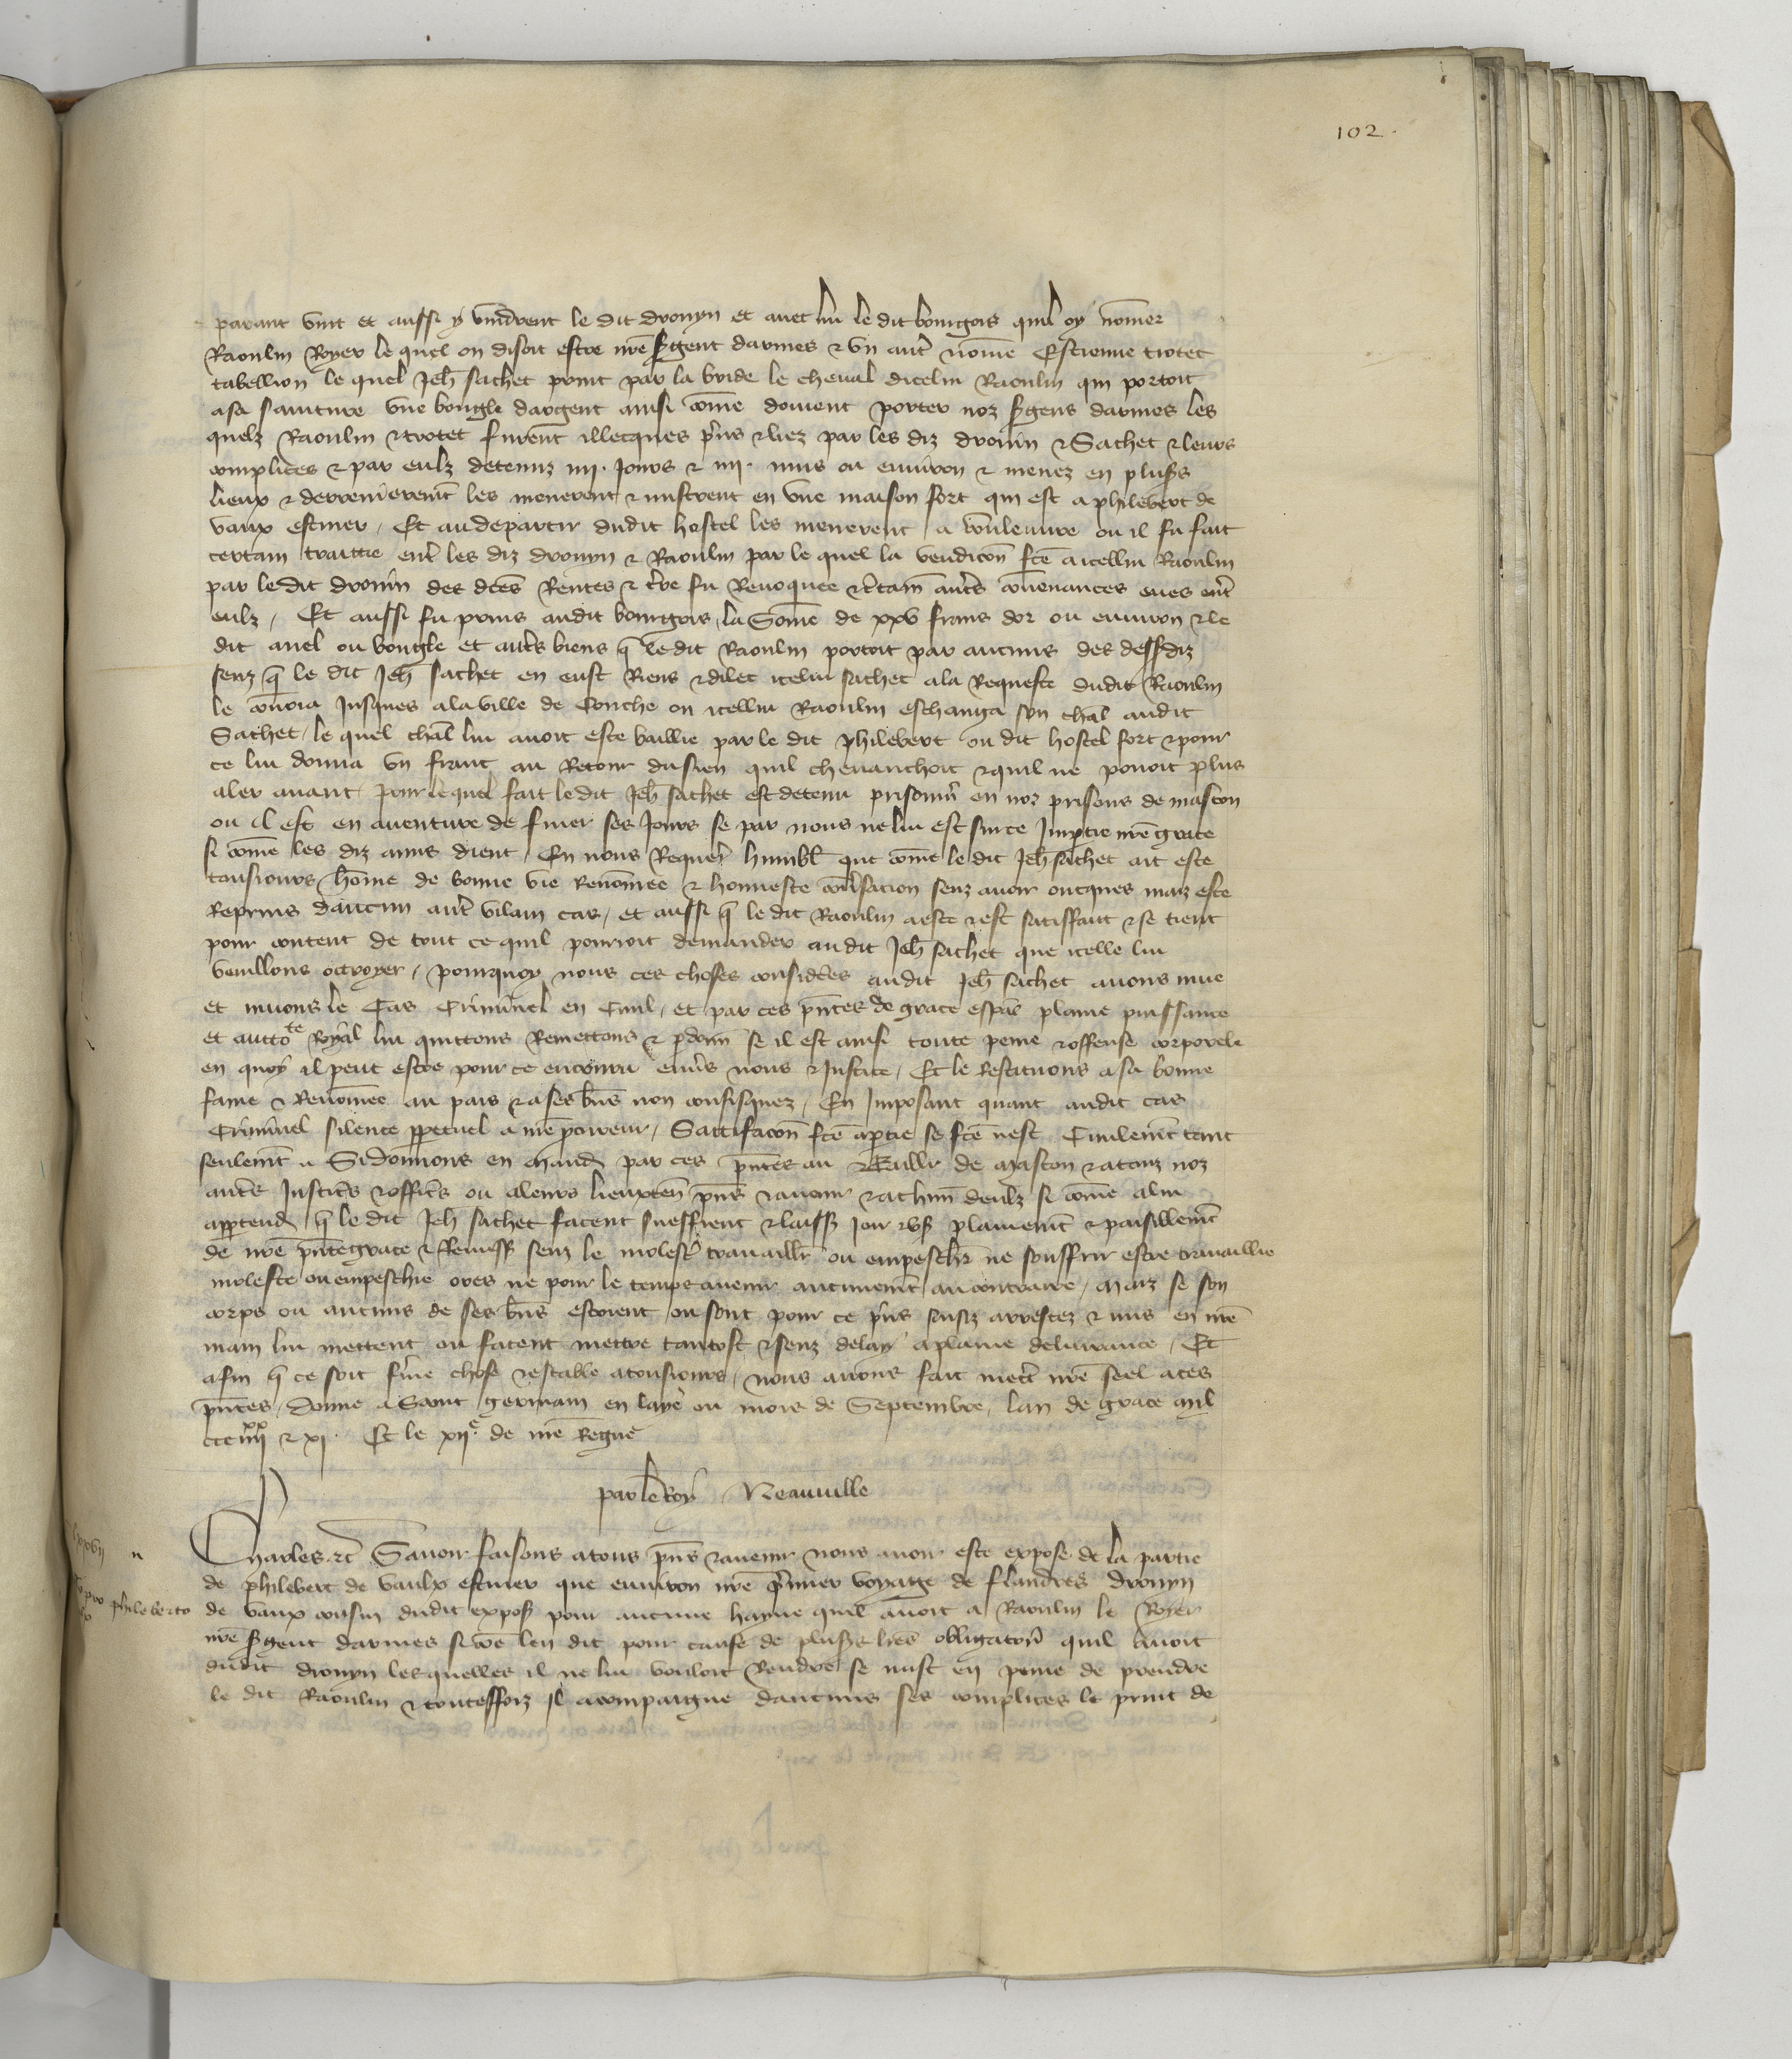 102.
parant vint et aussi y vindrent le dit drouyn et avec lui le dit bourgois quil oy nom̄er
Raoulin Royer le quel on disoit estre nr̄e sergent darmes & un autr̄ nom̄e Estienne trotet
tabellion le quel Jeh̄ sachet print par la bride le cheval dicelui Raoulin qui portoit
a sa sainture une bougle dargent ainsi com̄e doivent porter noz sergens darmes les
quelz Raoulin & trotet furent illecques prins & liez par les diz drouin & Sachet & leurs
complices & par eulz detenuz iiii. Jours & iiii. nuis ou environ & menez en plus̄s
lieux & derrenierem̄t les menerent & mistrent en une maison fort qui est a philebert de
vaux escuier / Et au departir dudit hostel les menerent a bonlenure ou il fu fait
certain traittie entr̄ les diz drouyn & Raoulin par le quel la vendicōn fc̄e a icellui Raoulin
par le dit drouin des dc̄es Rentes & tr̄re fu Revoquee & c̄tain autrs̄ convenances eues entr̄
eulz / Et aussi fu prins audit bourgois la Som̄e de xxv frans dor ou environ & le
dit anel ou bougle et autrs̄ biens q̄ le dit Raoulin portoit par aucuns des dessdiz
senz q̄ le dit Jeh̄ sachet en eust Riens & dilec icelui sachet a la Requeste dudit Raoulin
le convoia Jusques a la ville de Conche ou icellui Raoulin eschanga son chāl audit
Sachet / le quel chāl lui avoit este baillie par le dit philebert ou dit hostel fort & pour
ce lui donna un franc au Retour du sien quil chevauchoit & quil ne povoit plus
aler avant / pour lequel fait le dit Jeh̄ sachet est detenu prisonnr̄ en noz prisons de mascon
ou il est en aventure de finer ses Jours se par nous ne lui est sur ce Imp̄tie nr̄e grace
si com̄e les diz amis dient / En nous Requer̄ humbl̄ que com̄e le dit Jeh̄ sachet ait este
tousiours hom̄e de bonne vie Renom̄ee & honneste conv̄sacion senz avoir oncques maiz este
Reprins daucun autr̄ vilain cas / et aussi q̄ le dit Raoulin a este & est satiffait & se tient
pour content de tout ce quil pourroit demander audit Jeh̄ sachet que icelle lui
veuillons octroyer / pourquoy nous ces choses consider̄es audit Jeh̄ sachet avons mue
et muons le Cas Criminel en Civil / et par ces pn̄tes de grace esp̄al plaine puissance
et auctote Royal lui quittons Remettons & p̄donn̄ se il est ainsi toute peine & offense corporele
en quoy il peut estre pour ce encouru envs̄ nous & Justice / Et le Restituons a sa bonne
fame & Renom̄ee au pais & a ses bn̄s non confisquez / En Imposant quant audit cas
Criminel silence p̄petuel a nr̄e p̄cureur / Sattifacōn fc̄e a p̄tie se fc̄e nest Civilem̄t tant
seulem̄t a Si donnons en mand̄ par ces pn̄tes au Bailli de Mascon & a touz noz
autrs̄ Justicrs̄ & officrs̄ ou a leurs lieuxten̄ pn̄s & avenir & a chūn deulz si com̄e a lui
appartend̄ q̄ le dit Jeh̄ sachet facent sueffrent & laiss̄ Joir & us̄ plainem̄t & paisiblem̄t
de nr̄e pn̄te grace & Remiss̄ senz le molestr̄ travaillr̄ ou empeschr̄ ne souffrir estre travaillie
moleste ou empeschie ores ne pour le temps avenir aucunem̄t au contraire / Maiz se son
corps ou aucuns de ses bn̄s estoient ou sont pour ce prins saisiz arrestez & mis en nr̄e
main lui mettent ou facent mettre tantost & senz delay a plaine delivrance / Et
afin q̄ ce soit ferme chose & estable a tousiours / nous avons fait mettr̄ nr̄e seel a ces
pn̄tes / Donne a Saint germain en laye ou mois de Septembre / lan de grace mil
ccc iiiixx & xi. Et le xiie de nr̄e Regne
par le Roy / Neauville
Charles &c̄ Savoir faisons a tous pn̄s & avenir nous avoir este expose de la partie
de philebert de vaulx escuier que environ nr̄e p̄mier voyage de flandres drouyn
pro phileberto
de vaux cousin dudit expos̄ pour aucune hayne quil avoit a Raoulin le Royer
nr̄e sergent darmes si com̄e len dit pour cause de plus̄s lr̄es obligatoir̄ quil avoit
dudit drouyn lesquelles il ne lui vouloit Rendre se mist en peine de prendre
le dit Raoulin & toutesfoiz il acompaigne daucuns ses complices le print de